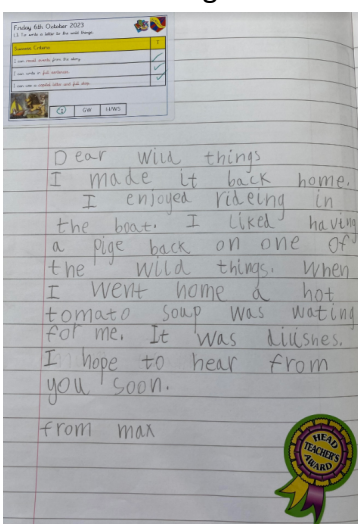 Friday 6th October 2023
LI: To write a letter to the wild things.
Success Criteria
I can recall events from the story.
I can write in full sentences.
I can use a capital letter and full stop.
GW
Dear Wild things
I made it back home.
I enjoyed rideing in
the boat. I liked having
a pige back on one of
the wild things. When
I went home a hot
tomato soup was wating
for me. It was
I hope to hear from
you soon.
from max
HEAD
TEACHER'S
AWARD